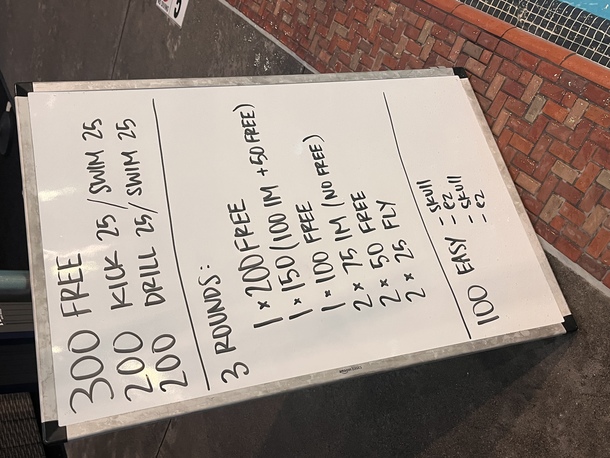 300 FREE
200 KICK 25 / SWIM 25
200 DRILL 25 / SWIM 25
3 ROUNDS:
1 × 200 FREE
1 × 150 (100 IM + 50 FREE)
1 × 100 FREE
2 × 75 IM (NO FREE)
2 × 50 FREE
2 × 25 FLY
100 EASY - skull
- ez
- skull
- ez